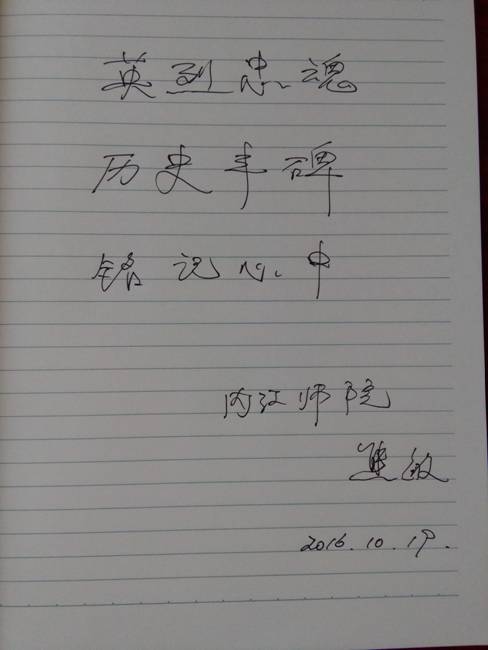 英烈忠魂
历史丰碑
铭记心中
内江师院
焦敏
2016.10.19.